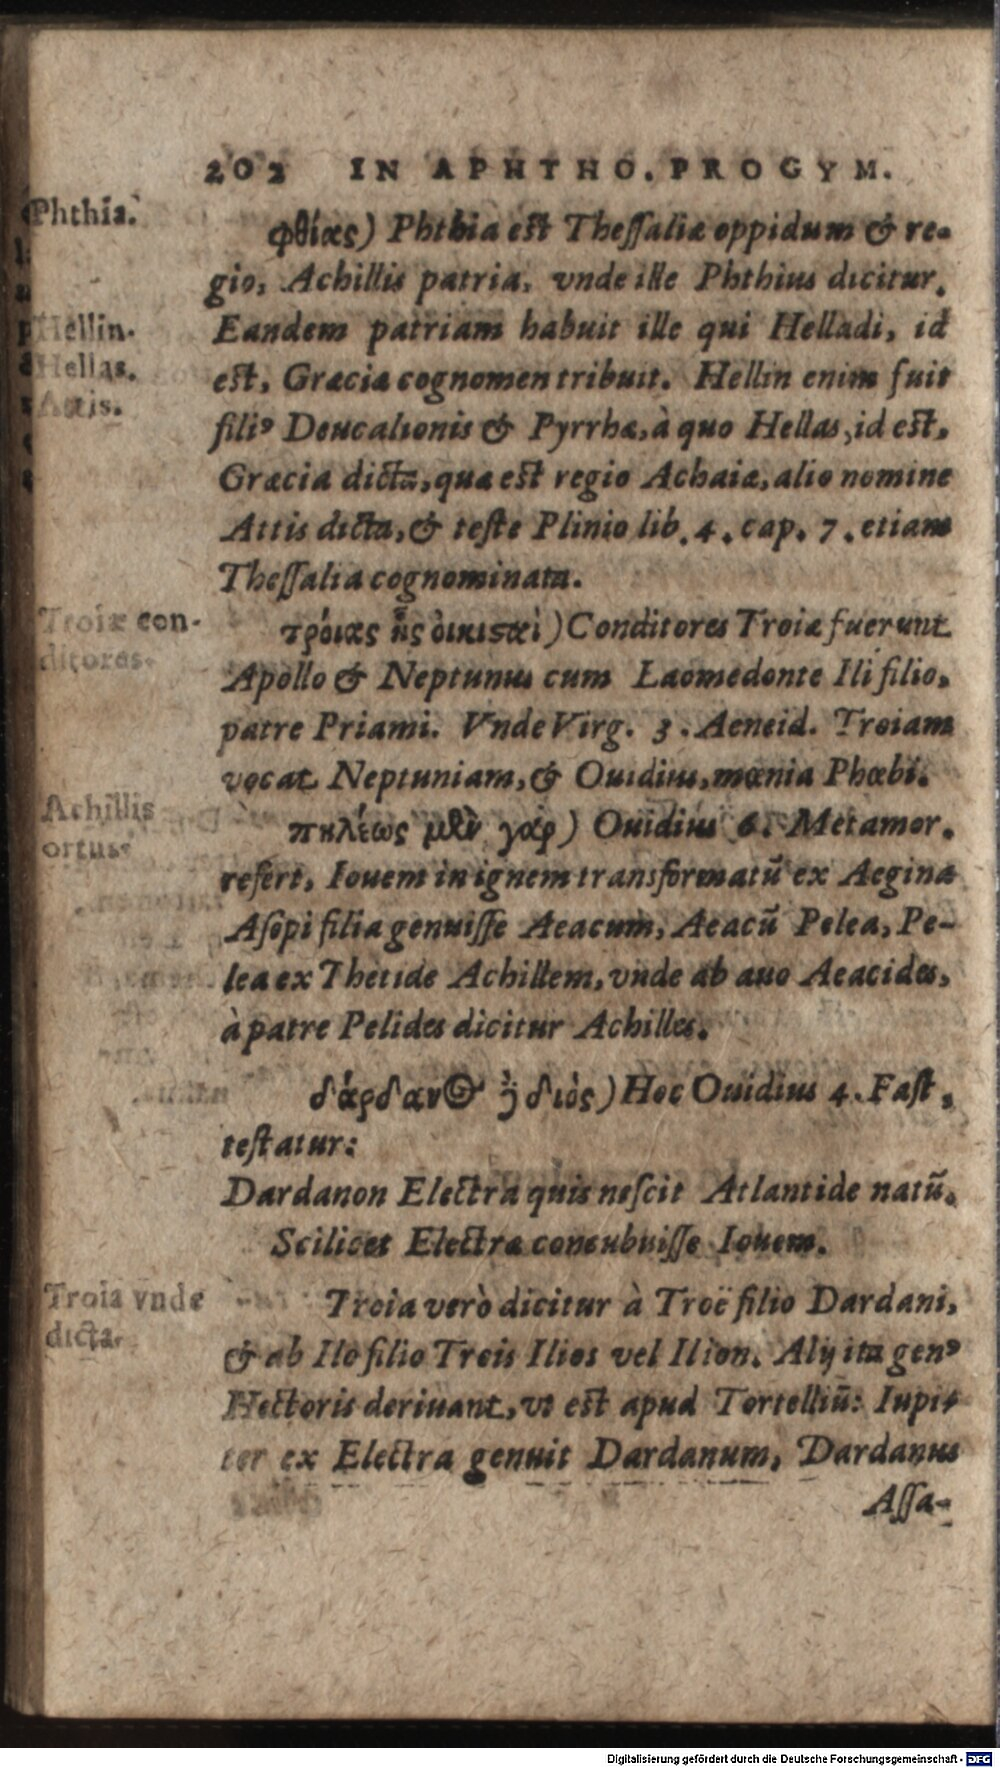 202 IN APHTHO. PROGYM.
Phthia.
φθίας) Phthia est Thessaliæ oppidum & re-
gio, Achillis patria, vnde ille Phthius dicitur.
Hellin.
Eandem patriam habuit ille qui Helladi, id
Hellas.
est, Græciæ cognomen tribuit. Hellin enim fuit
Attis.
filiꝰ Deucalionis & Pyrrhæ, à quo Hellas, id est,
Græcia dicta, quæ est regio Achaiæ, alio nomine
Attis dicta, & teste Plinio lib. 4. cap. 7. etiam
Thessalia cognominata.
Troiæ con-
ditores.
τρόιας ἧς ὀικισαὶ) Conditores Troiæ fuerunt
Apollo & Neptunus cum Laomedonte Ili filio,
patre Priami. Vnde Virg. 3. Aeneid. Troiam
vocat Neptuniam, & Ouidius, mœnia Phœbi.
Achillis
ortus.
πηλέως μὲν γὰρ) Ouidius 6. Metamor.
refert, Iouem in ignem transformatū ex Aegina
Asopi filia genuisse Aeacum, Aeacū Pelea, Pe-
lea ex Thetide Achillem, vnde ab auo Aeacides,
à patre Pelides dicitur Achilles.
δάρδανος ὁ διὸς) Hoc Ouidius 4. Fast.
testatur:
Dardanon Electra quis nescit Atlantide natū.
Scilicet Electræ concubuisse Iouem.
Troia vnde
dicta.
Troia verò dicitur à Troë filio Dardani,
& ab Ilo filio Trois Ilios vel Ilion. Alij ita genꝰ
Hectoris deriuant, vt est apud Tortelliū: Iupi-
ter ex Electra genuit Dardanum, Dardanus
Assa-
Digitalisierung gefördert durch die Deutsche Forschungsgemeinschaft - DFG